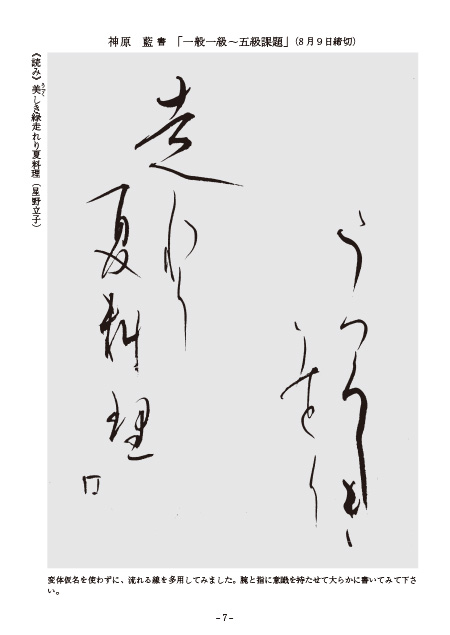 神原　藍 書 「一般一級～五級課題」(8月9日締切)
《読み》美しき緑走れり夏料理（星野立子）
うつくしき
みとり
走れり
夏料理
変体仮名を使わずに、流れる線を多用してみました。腕と指に意識を持たせて大らかに書いてみて下さ
い。
－7－